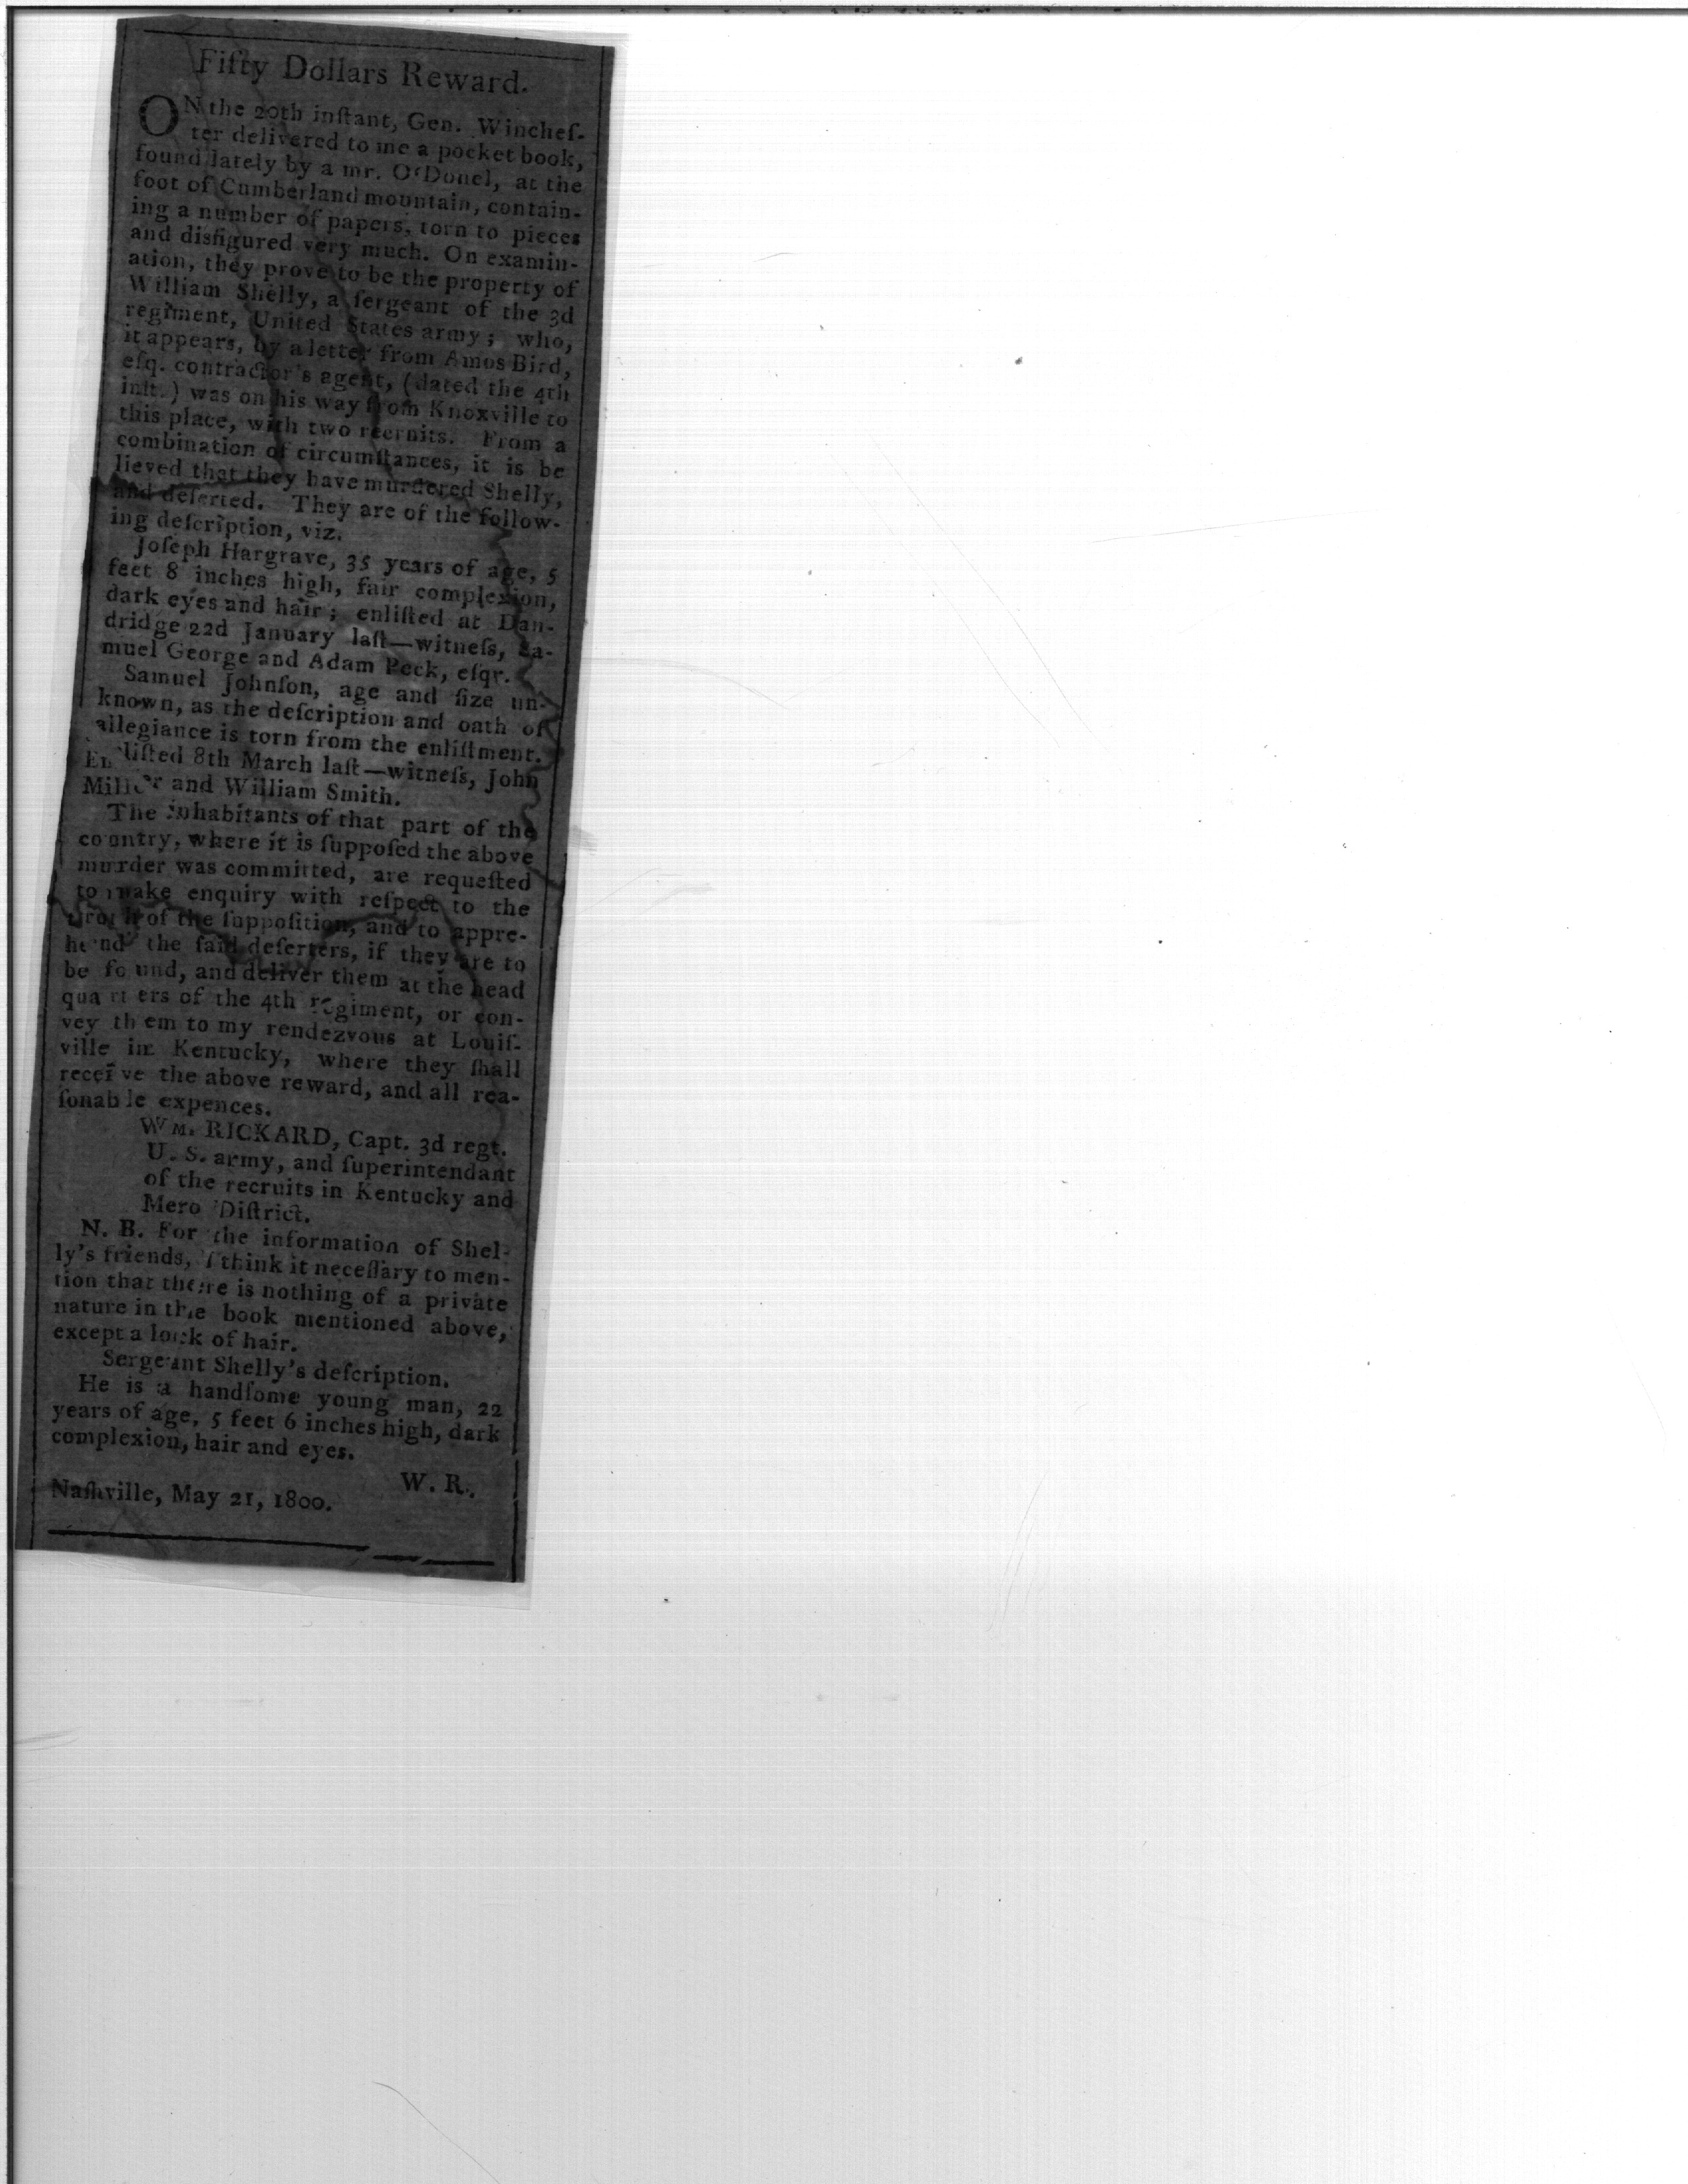 Fifty Dollars Reward.
ON the 20th inſtant, Gen. Wincheſ-
ter delivered to me a pocket book,
found lately by a mr. O'Donel, at the
foot of Cumberland mountain, contain-
ing a number of papers, torn to pieces
and disfigured very much. On examin-
ation, they prove to be the property of
William Shelly, a ſergeant of the 3d
regiment, United States army; who,
it appears, by a letter from Amos Bird,
eſq. contractor's agent, (dated the 4th
inſt.) was on his way from Knoxville to
this place, with two recruits. From a
combination of circumſtances, it is be
lieved that they have murdered Shelly,
and deſerted. They are of the follow-
ing deſcription, viz.
Joſeph Hargrave, 35 years of age, 5
feet 8 inches high, fair complexion,
dark eyes and hair; enliſted at Dan-
dridge 22d January laſt—witneſs, Sa-
muel George and Adam Peck, eſqr.
Samuel Johnſon, age and ſize un-
known, as the deſcription and oath of
allegiance is torn from the enliſtment.
Enliſted 8th March laſt—witneſs, John
Miller and William Smith.
The inhabitants of that part of the
country, where it is ſuppoſed the above
murder was committed, are requeſted
to make enquiry with reſpect to the
truth of the ſuppoſition, and to appre-
hend the ſaid deſerters, if they are to
be found, and deliver them at the head
quarters of the 4th regiment, or con-
vey them to my rendezvous at Louiſ-
ville in Kentucky, where they ſhall
receive the above reward, and all rea-
ſonable expences.
WM. RICKARD, Capt. 3d regt.
U. S. army, and ſuperintendant
of the recruits in Kentucky and
Mero Diſtrict.
N. B. For the information of Shel-
ly's friends, I think it neceſſary to men-
tion that there is nothing of a private
nature in the book mentioned above,
except a lock of hair.
Sergeant Shelly's deſcription.
He is a handſome young man, 22
years of age, 5 feet 6 inches high, dark
complexion, hair and eyes.
W. R.
Naſhville, May 21, 1800.